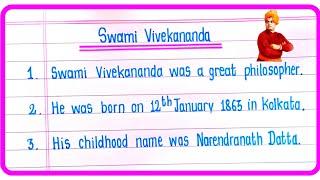 Swami Vivekananda
1. Swami Vivekananda was a great philosopher.
2. He was born on 12th January 1863 in Kolkata.
3. His childhood name was Narendranath Datta.